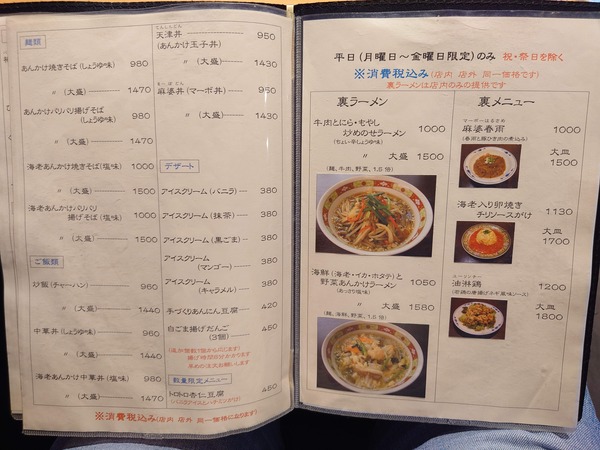 麺類
あんかけ焼きそば(しょうゆ味) 980
〃 (大盛) 1470
あんかけパリパリ揚げそば
(しょうゆ味) 980
〃 (大盛) 1470
海老あんかけ焼きそば(塩味) 1000
〃 (大盛) 1500
海老あんかけパリパリ
揚げそば(塩味) 1000
〃 (大盛) 1500
ご飯類
炒飯(チャーハン) 960
〃 (大盛) 1440
中華丼(しょうゆ味) 960
〃 (大盛) 1440
海老あんかけ中華丼(塩味) 980
〃 (大盛) 1470
てんしんどん
天津丼 950
(あんかけ玉子丼)
〃 (大盛) 1430
麻婆丼(マーボ丼) 950
〃 (大盛) 1430
デザート
アイスクリーム(バニラ) 380
アイスクリーム(抹茶) 380
アイスクリーム(黒ごま) 380
アイスクリーム
(マンゴー) 380
アイスクリーム
(キャラメル) 380
手づくりあんにん豆腐 420
白ごま揚げだんご
(3個) 450
揚げ時間がかかります
早めの注文お願いします
数量限定メニュー
トロトロ杏仁豆腐 450
※消費税込み(店内 店外 同一価格になります)
平日(月曜日~金曜日限定)のみ 祝・祭日を除く
※消費税込み(店内 店外 同一価格です)
裏ラーメンは店内のみの提供です
裏ラーメン
牛肉とにら・もやし
炒めのせラーメン 1000
(ちょい辛しょうゆ味)
〃 大盛 1500
(麺、牛肉、野菜、1.5倍)
海鮮(海老・イカ・ホタテ)と
野菜あんかけラーメン 1050
(あっさり塩味)
〃 大盛 1580
(麺、海鮮、野菜、1.5倍)
裏メニュー
マーボーはるさめ
麻婆春雨 1000
(春雨と豚ひき肉の煮込み)
大皿
1500
海老入り卵焼き
チリソースがけ 1130
大皿
1700
ユーリンチー
油淋鶏 1200
(若鶏の唐揚げネギ風味ソース)
大皿
1800